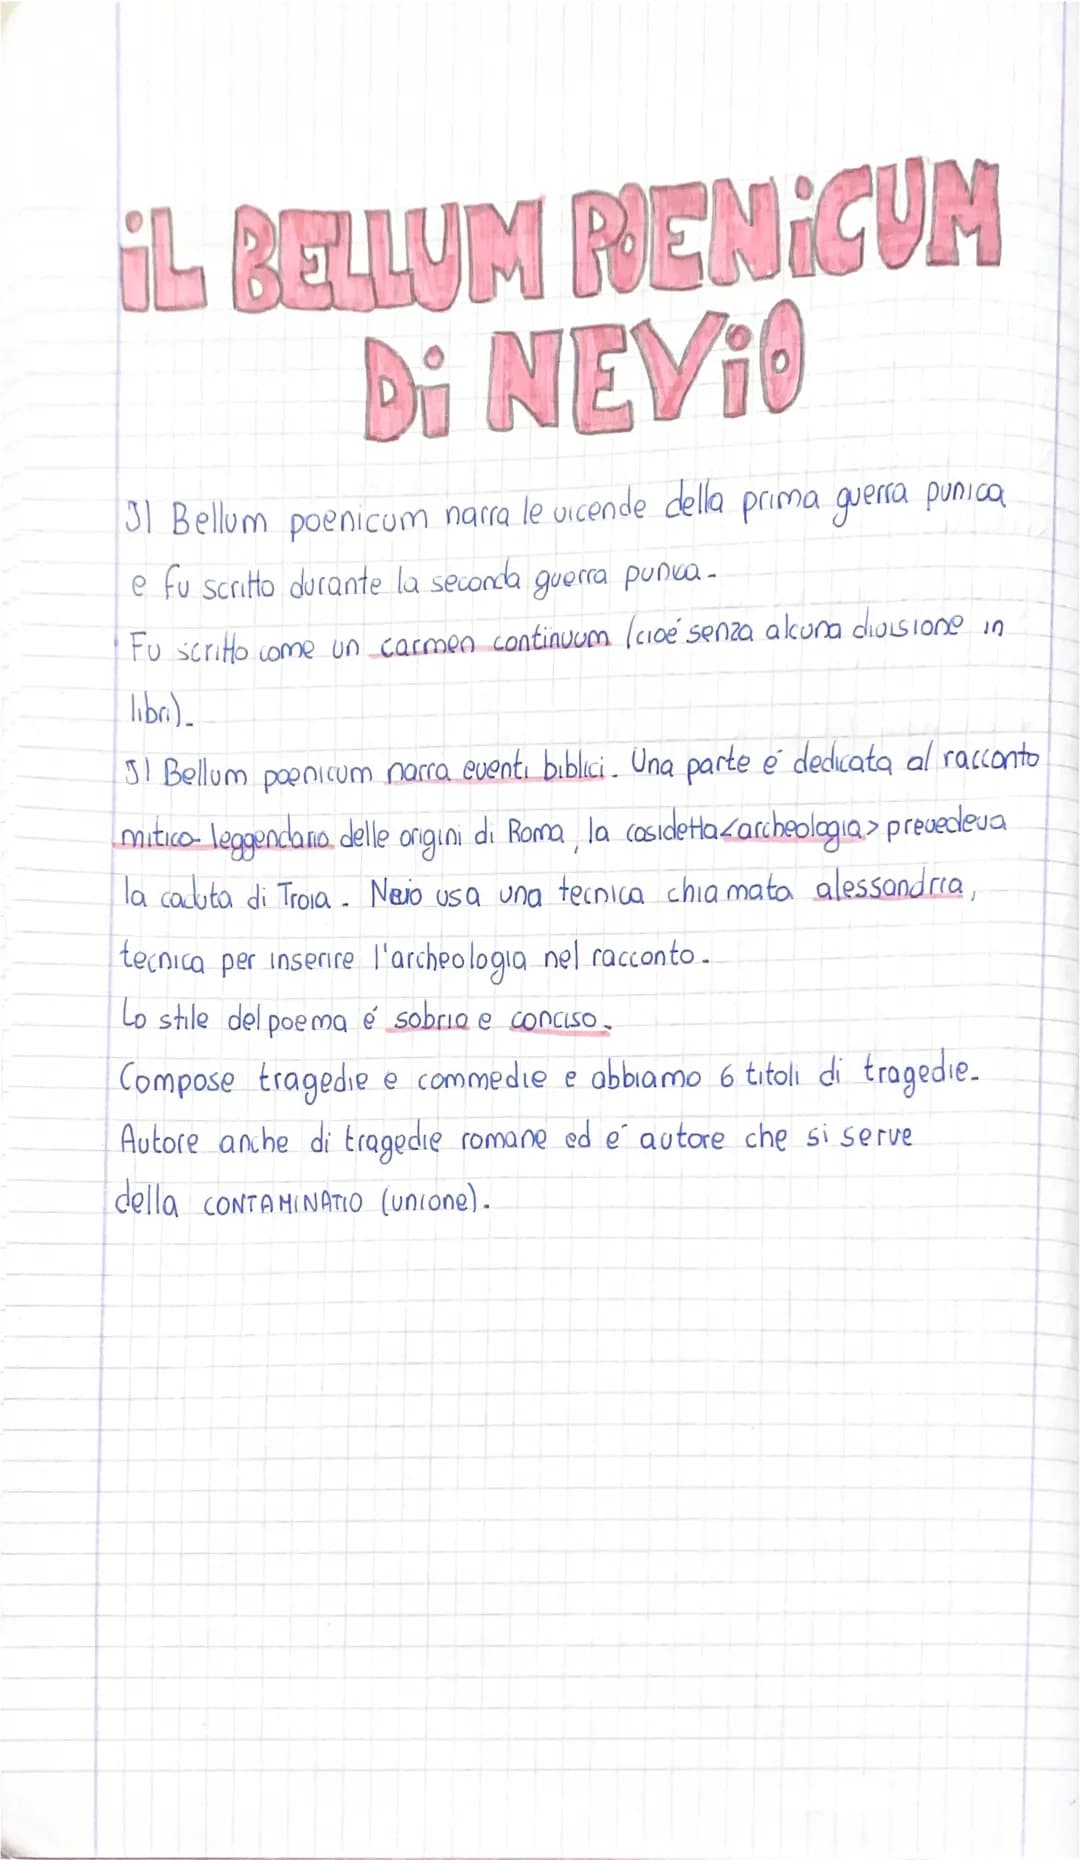 iL BELLUM POENiCUM
Di NEViO
Il Bellum poenicum narra le vicende della prima guerra punica
e fu scritto durante la seconda guerra punica.
Fu scritto come un carmen continuum (cioé senza alcuna divisione in
libri).
Il Bellum poenicum narra eventi biblici. Una parte é dedicata al racconto
mitico-leggendario delle origini di Roma, la cosidetta <archeologia> prevedeva
la caduta di Troia. Nevio usa una tecnica chiamata alessandria,
tecnica per inserire l'archeologia nel racconto.
Lo stile del poema é sobrio e conciso.
Compose tragedie e commedie e abbiamo 6 titoli di tragedie.
Autore anche di tragedie romane ed é autore che si serve
della CONTAMINATIO (unione).